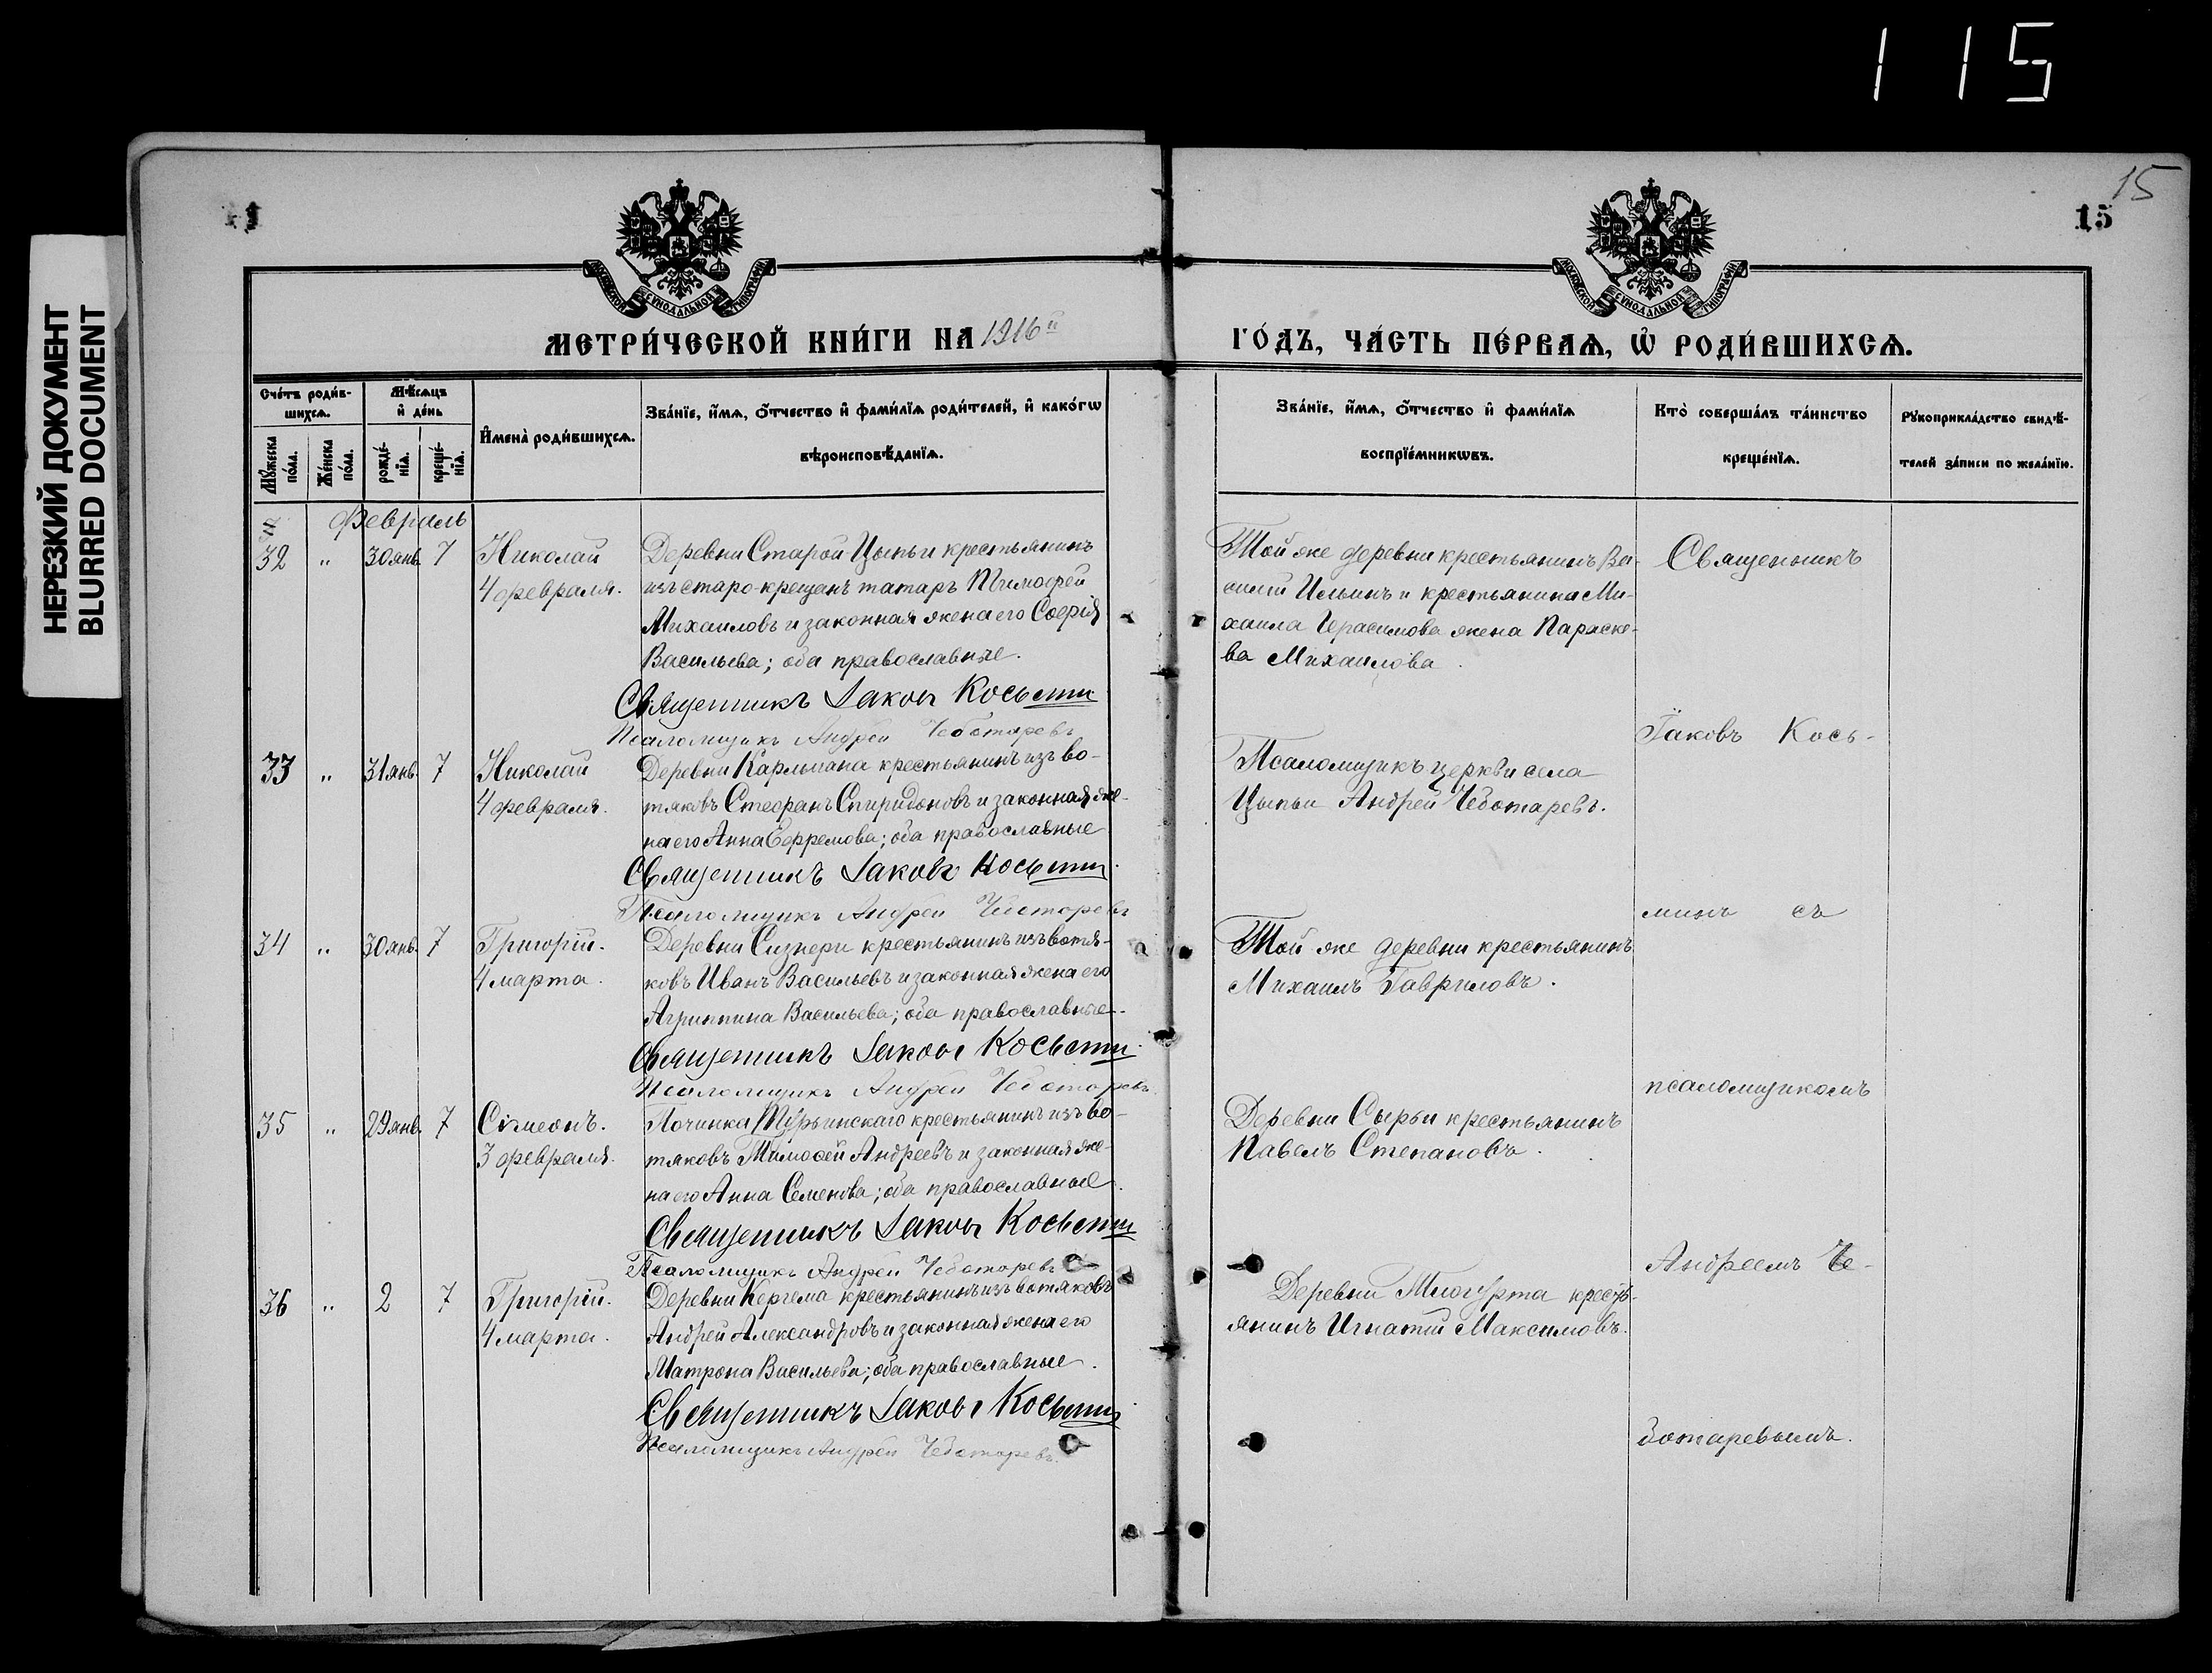 115
НЕРЕЗКИЙ ДОКУМЕНТ
BLURRED DOCUMENT
15
15
МОСКОВСКОЙ СѴНОДАЛЬНОЙ ТИПОГРАФІИ
МОСКОВСКОЙ СѴНОДАЛЬНОЙ ТИПОГРАФІИ
МЕТРИ́ЧЕСКОЙ КНИ́ГИ НА 1916й ГО́ДЪ, ЧА́СТЬ ПЕ́РВАѦ, Ѡ҆ РОДИ́ВШИХСѦ.
Сче́тъ роди́в-
шихсѧ.
Мꙋ́жеска по́ла.
Же́нска по́ла.
Мѣ́сѧцъ
и҆ де́нь
рожде́-
нїѧ.
креще́-
нїѧ.
И҆мена̀ роди́вшихсѧ.
Зва́нїе, и҆́мѧ, ѻ҆́тчество и҆ фами́лїѧ роди́телей, и҆ како́гѡ
вѣроисповѣ́данїѧ.
Зва́нїе, и҆́мѧ, ѻ҆́тчество и҆ фами́лїѧ
воспрїе́мникѡвъ.
Кто̀ соверша́лъ та́инство
креще́нїѧ.
Рꙋкоприкла́дство свидѣ́-
телей за́писи по жела́нїю.
Февраль
32 " 30 янв. 7 Николай
4 февраля.
Деревни Старой Цыпьи крестьянинъ
изъ старо-крещенъ татаръ Тимофей
Михаиловъ и законная жена его Софія
Васильева; оба православные.
Священникъ Іаковъ Косьмин
Псаломщикъ Андрей Чеботаревъ
Той же деревни крестьянинъ Ва-
силій Ильинъ и крестьянина Ми-
хаила Герасимова жена Параске-
ва Михаилова.
Священникъ
Іаковъ Кось-
33 " 31 янв. 7 Николай
4 февраля.
Деревни Карлыгана крестьянинъ изъ во-
тяковъ Стефанъ Спиридоновъ и законная же-
на его Анна Ефремова; оба православные
Священникъ Іаковъ Косьмин.
Псаломщикъ Андрей Чеботаревъ
Псаломщикъ церкви села
Цыпьи Андрей Чеботаревъ.
минъ съ
34 " 30 янв. 7 Григорій.
4 марта.
Деревни Сизнери крестьянинъ изъ вотя-
ковъ Иванъ Васильевъ и законная жена его
Агриппина Васильева; оба православные.
Священникъ Іаковъ Косьмин.
Псаломщикъ Андрей Чеботаревъ
Той же деревни крестьянинъ
Михаилъ Гавриловъ.
псаломщикомъ
35 " 29 янв. 7 Сімеонъ.
3 февраля.
Починка Турьинскаго крестьянинъ изъ во-
тяковъ Тимофей Андреевъ и законная же-
на его Анна Семенова; оба православные.
Священникъ Іаковъ Косьмин
Псаломщикъ Андрей Чеботаревъ
Деревни Сырьи крестьянинъ
Павелъ Степановъ.
Андреемъ Че-
36 " 2 7 Григорій.
4 марта.
Деревни Кергема крестьянинъ изъ вотяковъ
Андрей Александровъ и законная жена его
Матрона Васильева; оба православные.
Священникъ Іаковъ Косьмин
Псаломщикъ Андрей Чеботаревъ.
Деревни Тюгурта кресть-
янинъ Игнатій Максимовъ.
ботаревымъ.